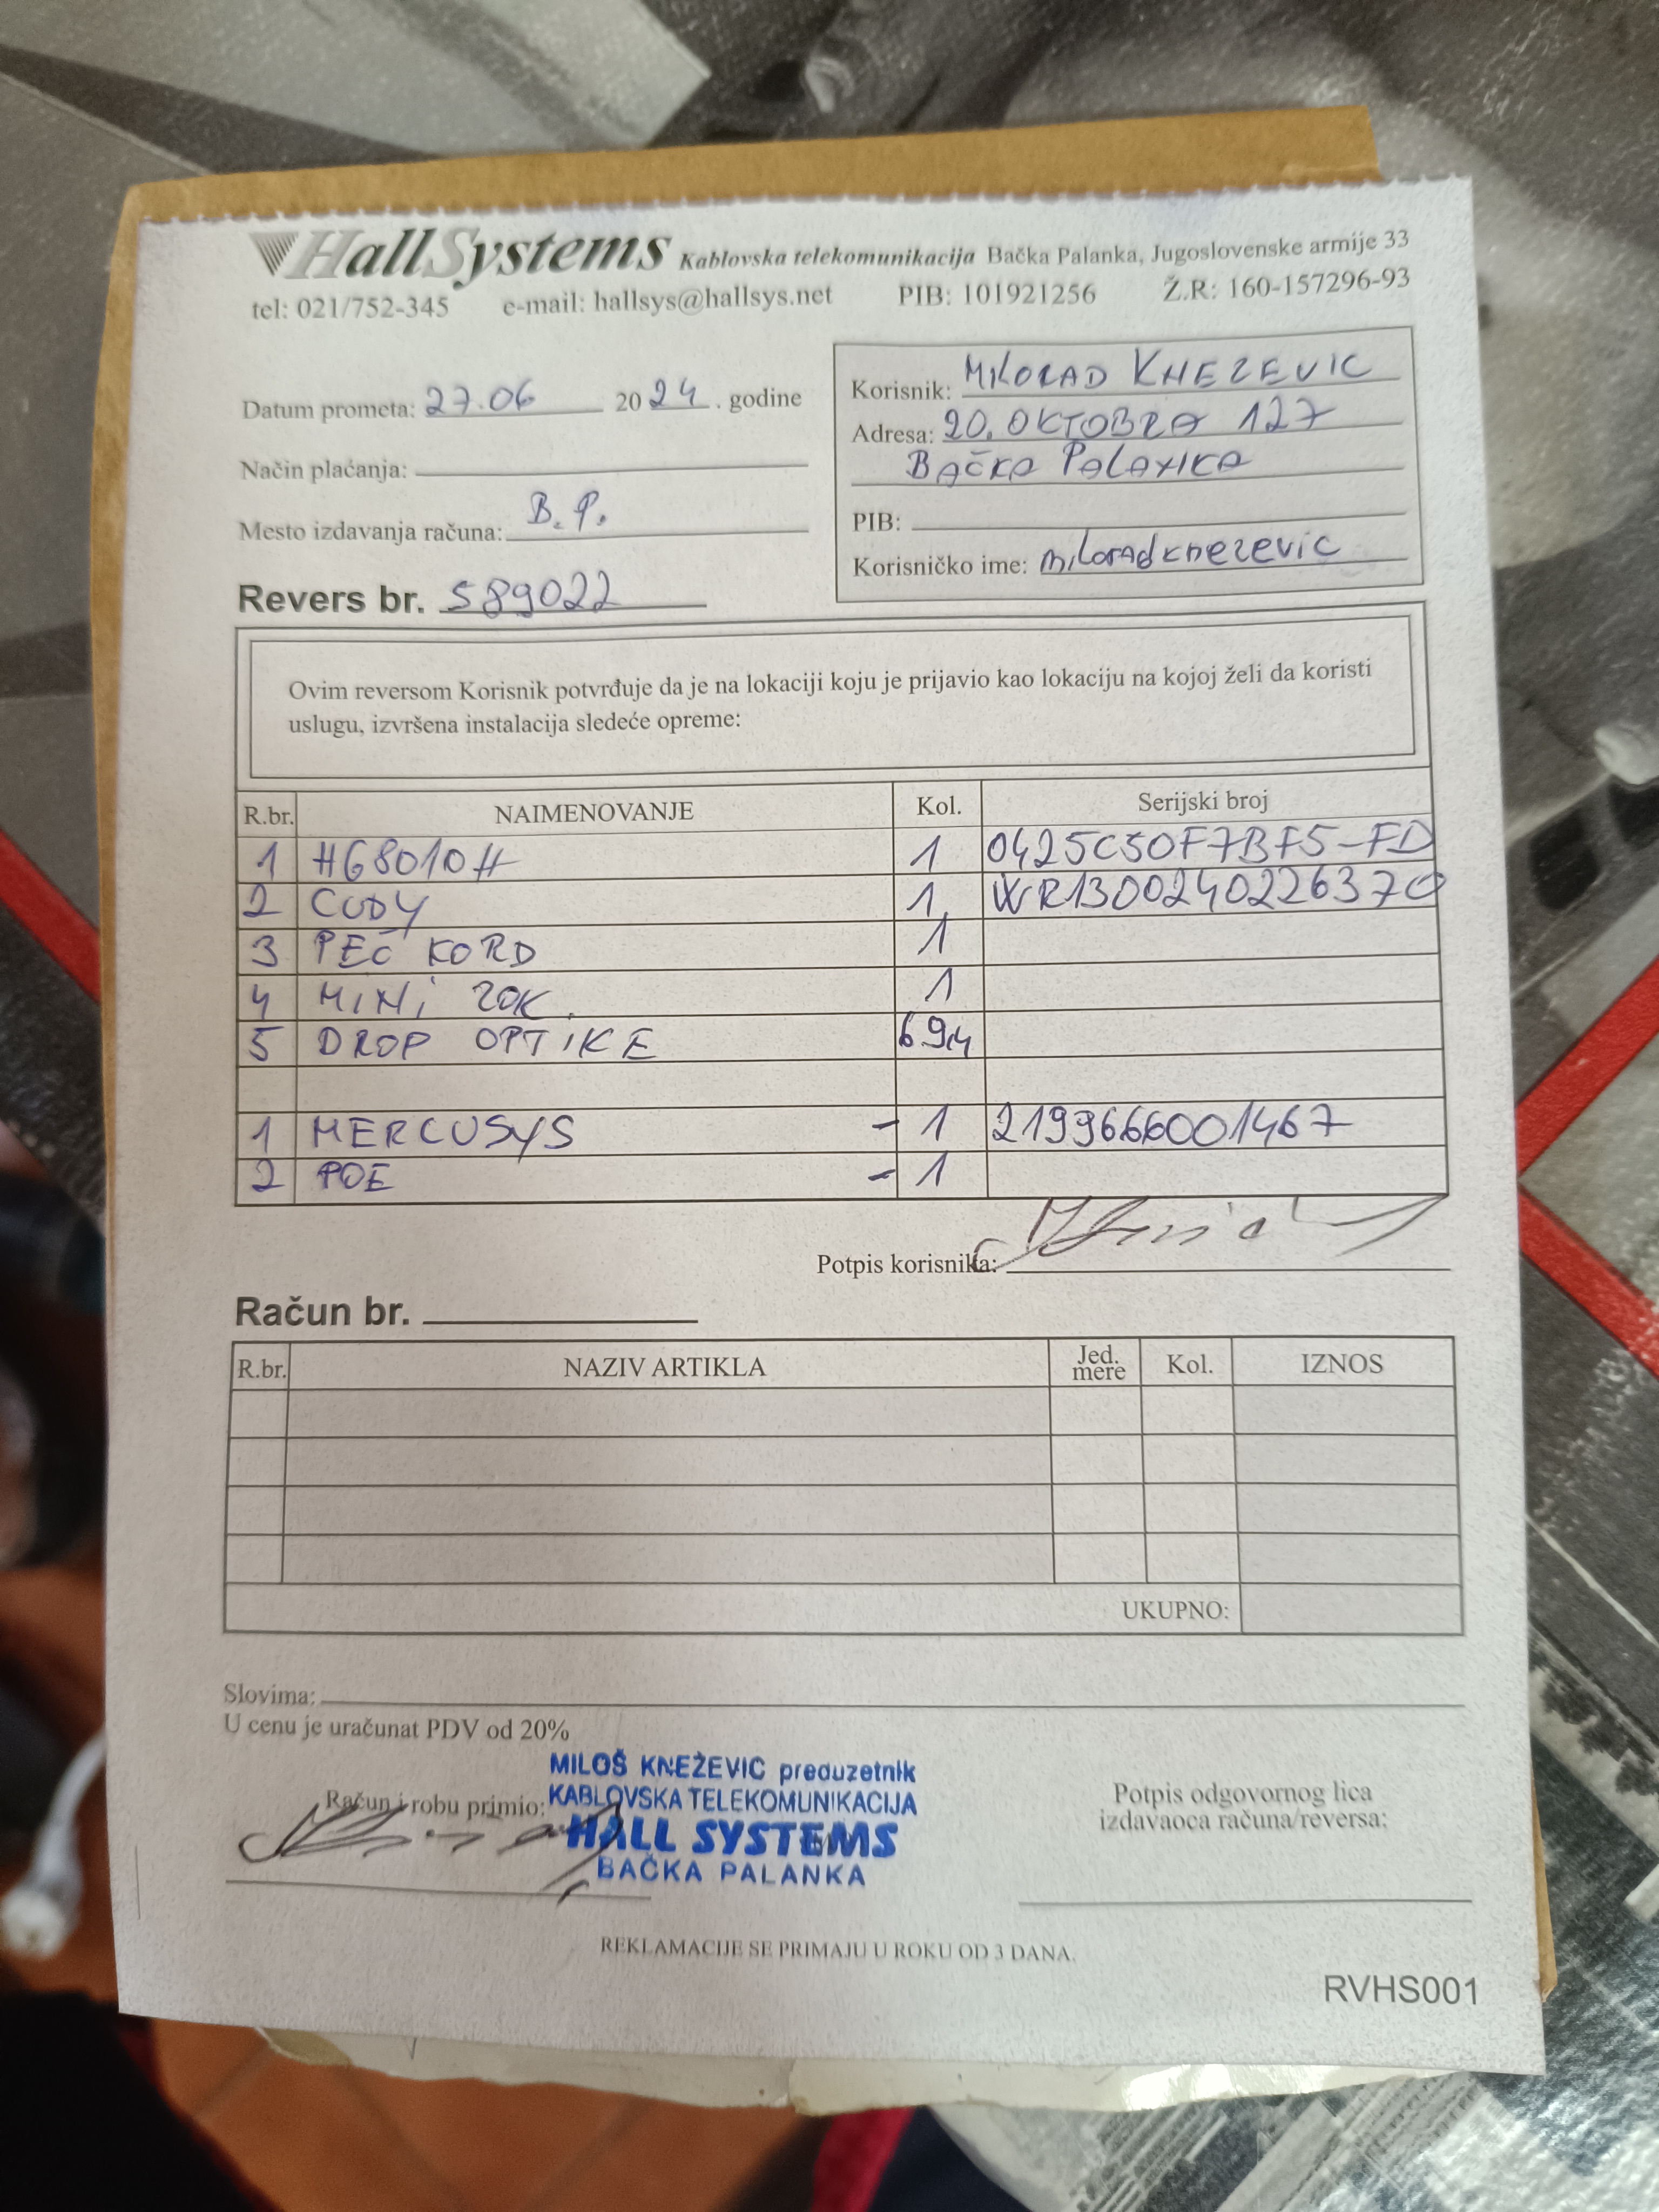 HallSystems Kablovska telekomunikacija Bačka Palanka, Jugoslovenske armije 33
tel: 021/752-345 e-mail: hallsys@hallsys.net PIB: 101921256 Ž.R: 160-157296-93
Datum prometa: 27.06 2024. godine
Način plaćanja:
Mesto izdavanja računa: B.P.
Revers br. 589022
Korisnik: MILORAD KNEZEVIC
Adresa: 20. OKTOBRA 127
BAČKA PALANKA
PIB:
Korisničko ime: miloradknezevic
Ovim reversom Korisnik potvrđuje da je na lokaciji koju je prijavio kao lokaciju na kojoj želi da koristi
uslugu, izvršena instalacija sledeće opreme:
R.br. NAIMENOVANJE Kol. Serijski broj
1 HG8010H 1 0425C50F7BF5-FD
2 CUDY 1 WR1300240226370
3 PEČ KORD 1
4 MINI ZOK. 1
5 DROP OPTIKE 69m
1 MERCUSYS - 1 2199666001467
2 POE - 1
Potpis korisnika:
Račun br.
R.br. NAZIV ARTIKLA Jed. mere Kol. IZNOS
UKUPNO:
Slovima:
U cenu je uračunat PDV od 20%
Račun i robu primio:
MILOŠ KNEŽEVIC preduzetnik
KABLOVSKA TELEKOMUNIKACIJA
HALL SYSTEMS
BAČKA PALANKA
Potpis odgovornog lica
izdavaoca računa/reversa:
REKLAMACIJE SE PRIMAJU U ROKU OD 3 DANA.
RVHS001